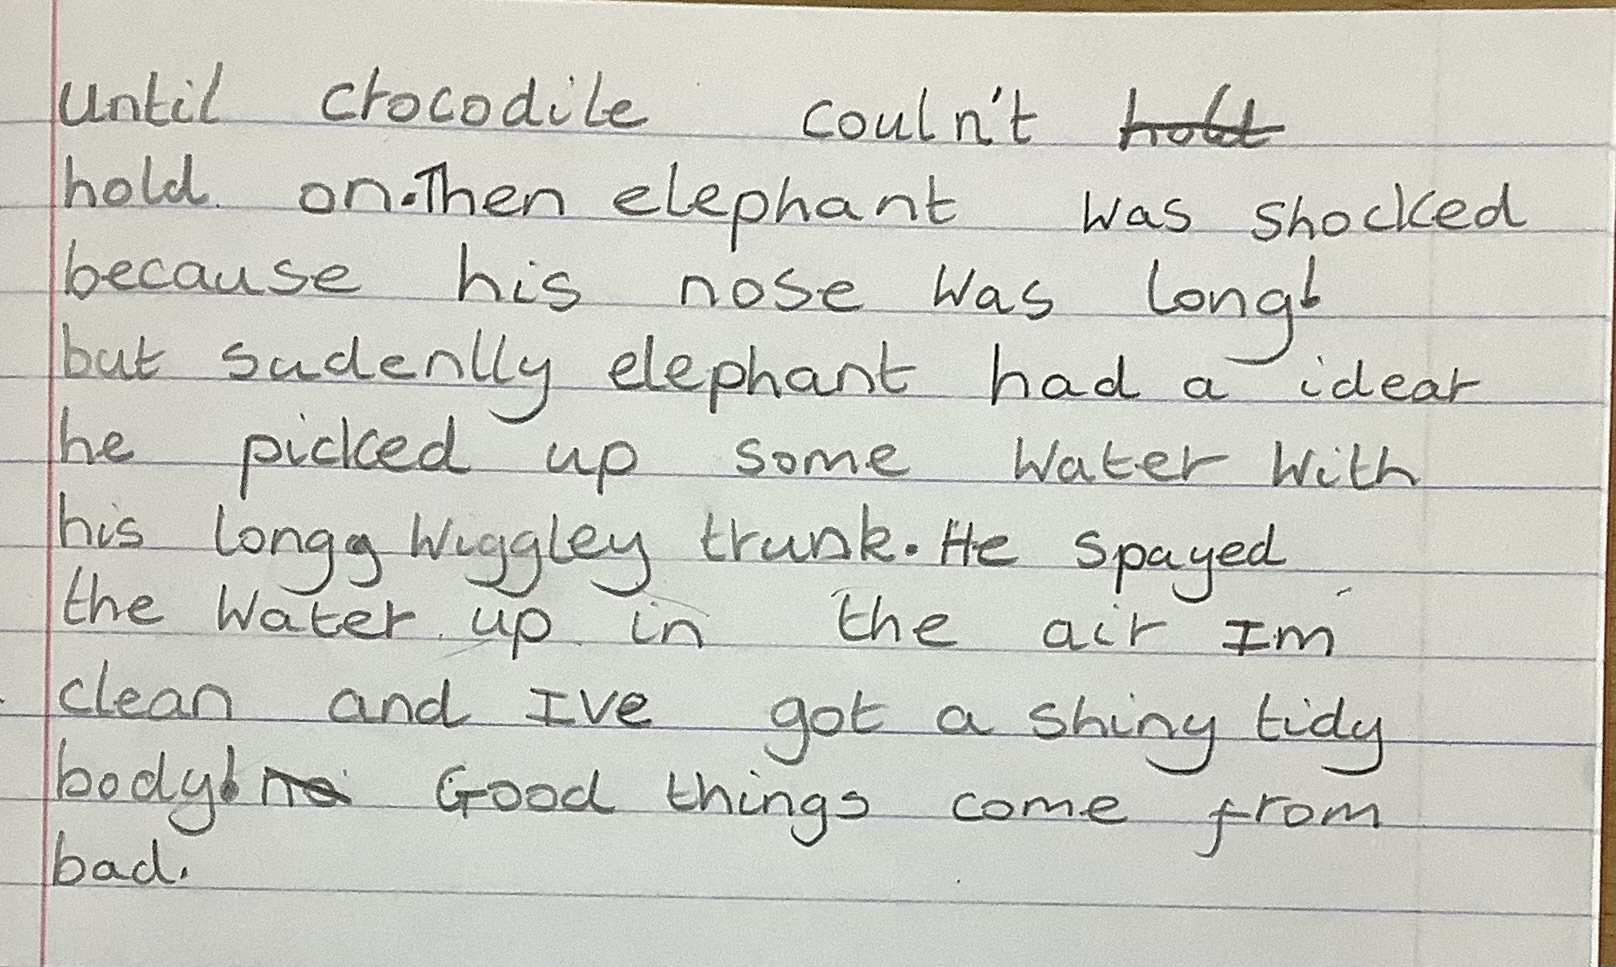 until crocodile couln't hold
hold on. Then elephant was shocked
because his nose was long!
but sudenlly elephant had a idear
he picked up some water with
his longg wiggley trunk. He spayed
the water up in the air Im
clean and Ive got a shiny tidy
body! no Good things come from
bad.